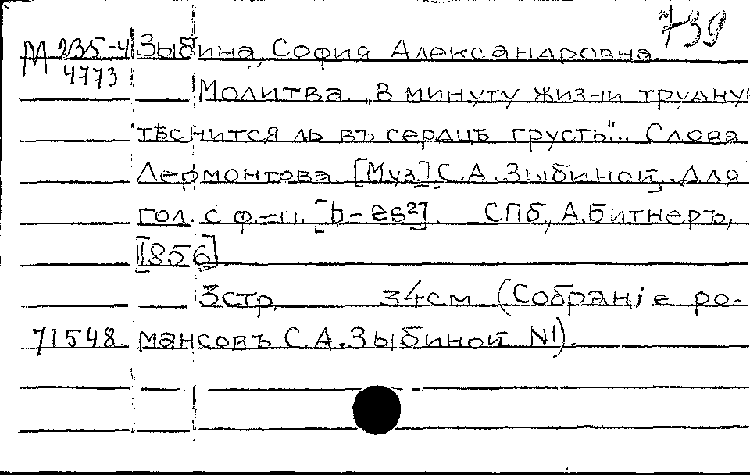 739
М 235-4 Зыбина, София Александровна.
4773
Молитва. „В минуту жизни трудную
тѣснится ль въ сердцѣ грусть"... Слова
Лермонтова [Муз] С.А.Зыбиной. Для
гол. с ф.-п. [b-es²]. СПб, А.Битнеръ,
[1856]
3стр. 34см (Собранiе ро-
71548 мансовъ С.А.Зыбиной №1).